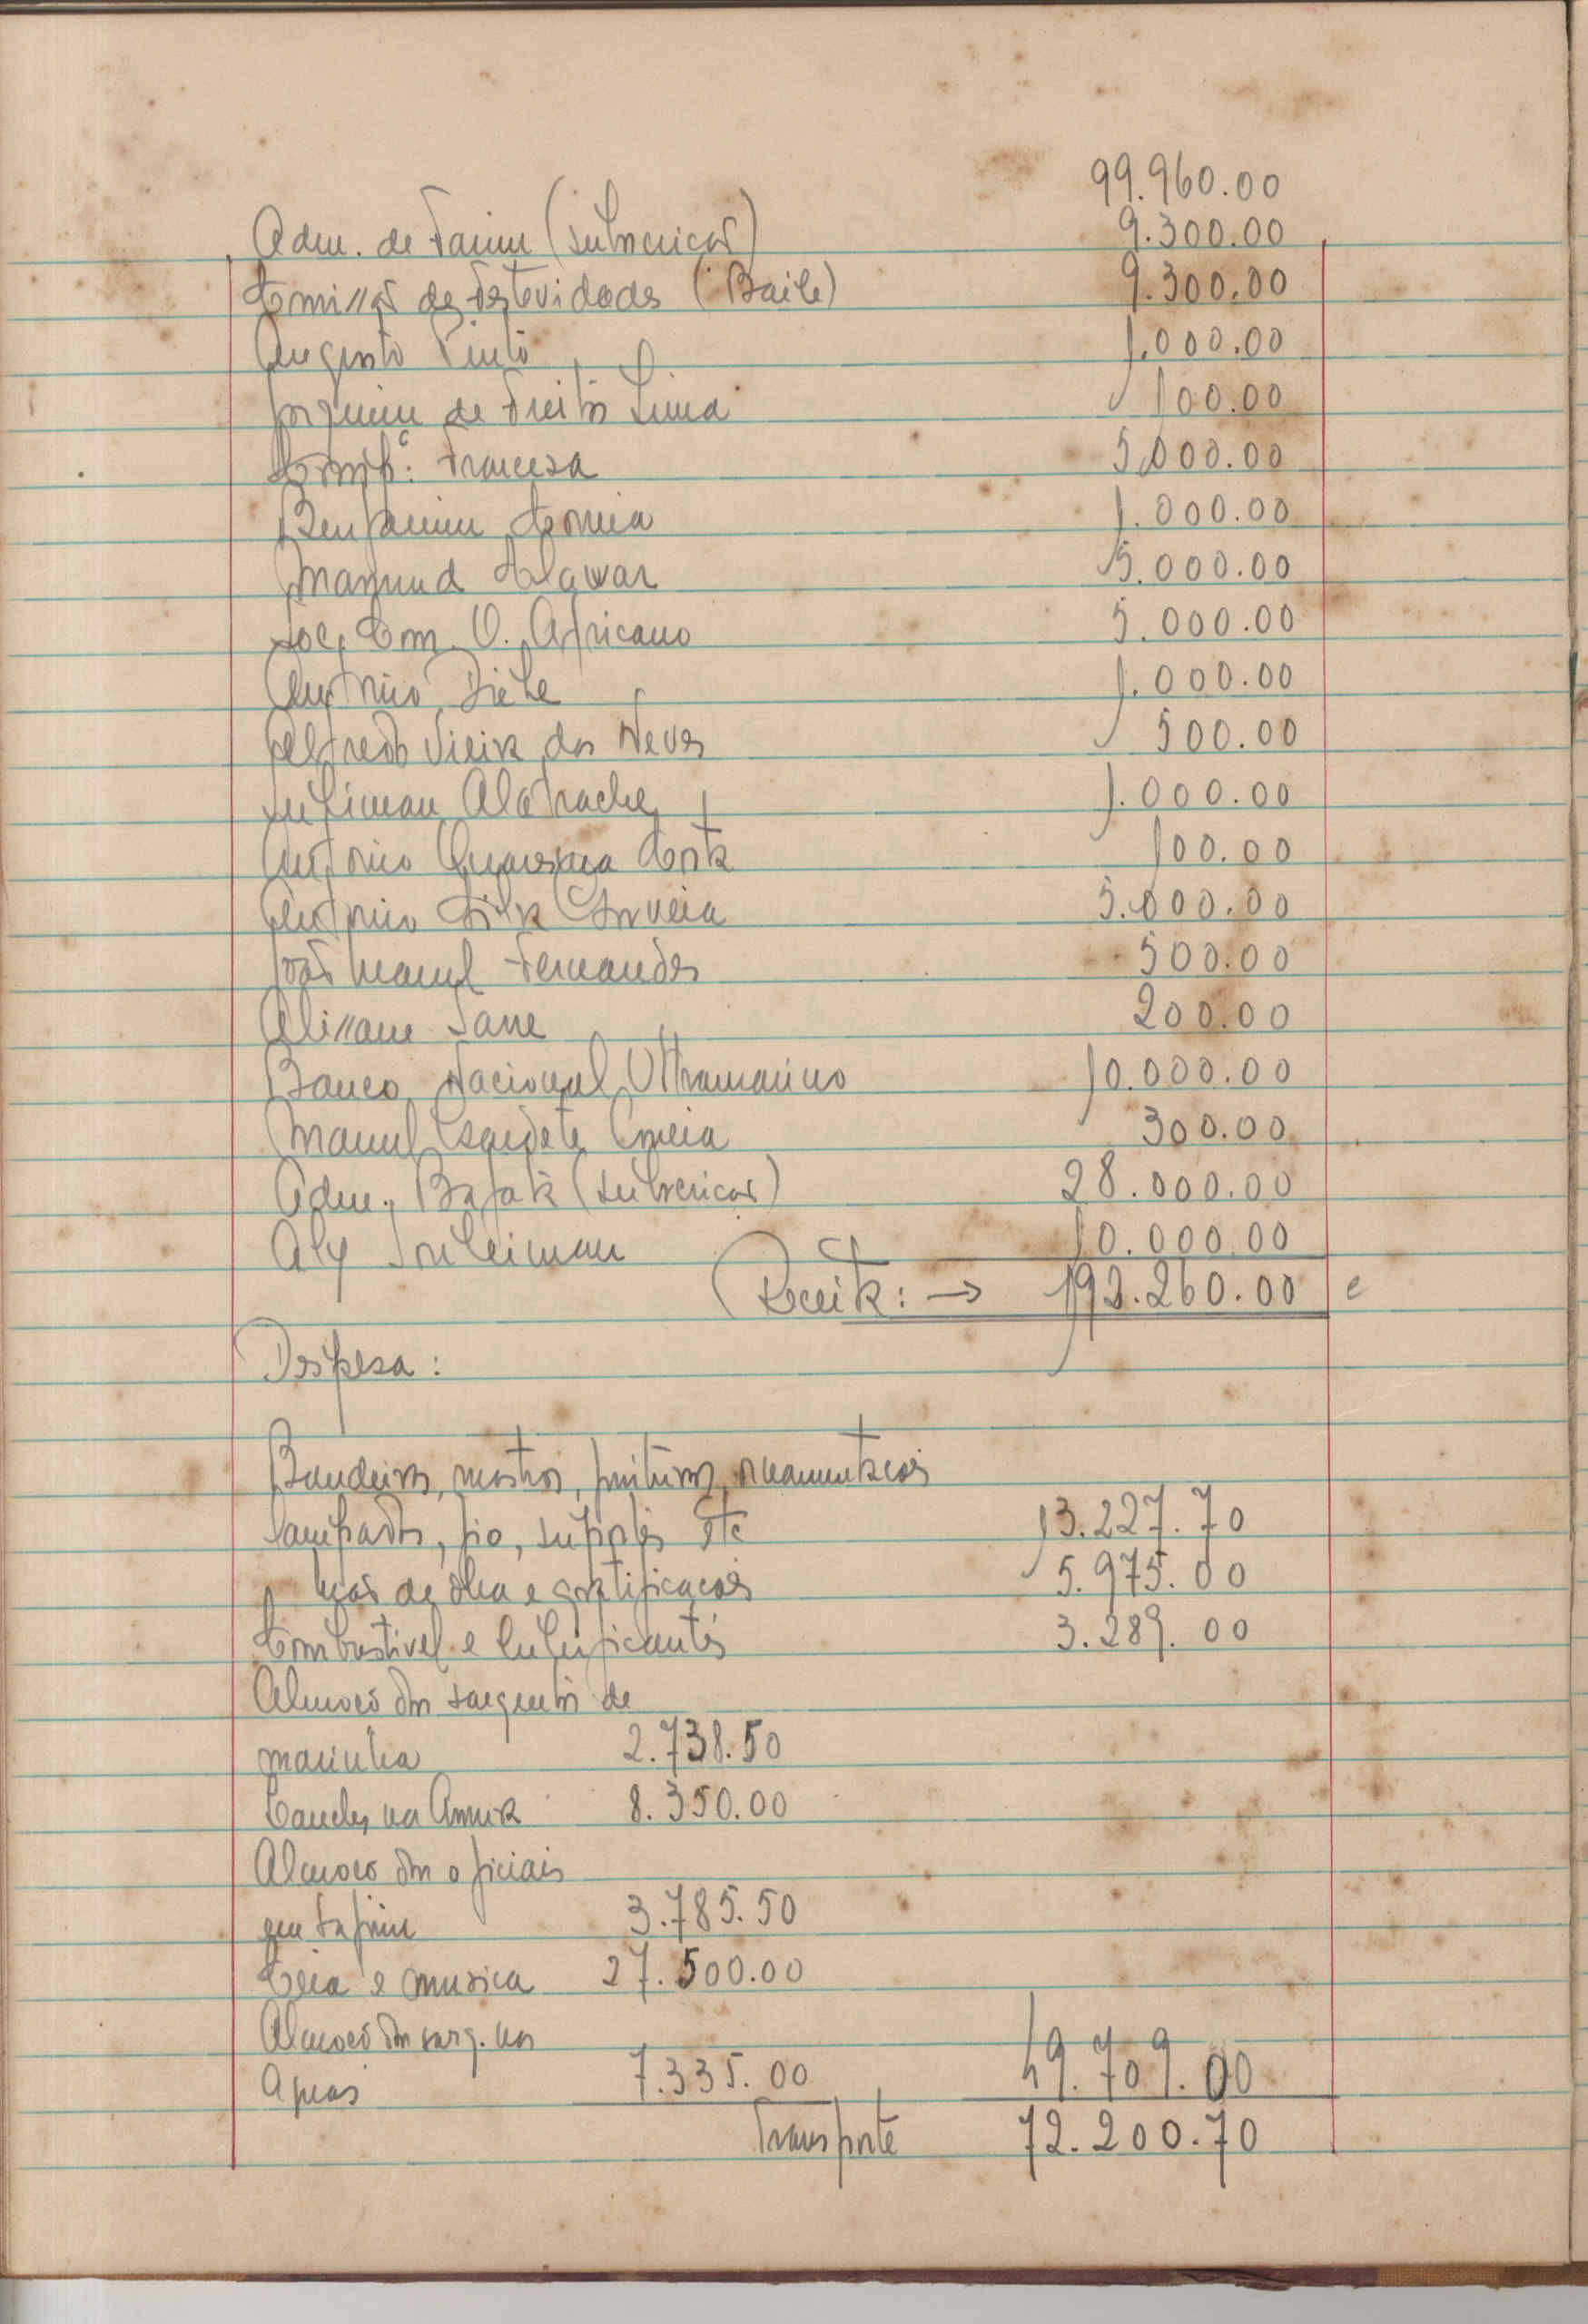 99.960.00
Adm. de Farim (subvenição) 9.300.00
Comissão de Festividades (Baile) 9.300.00
Augusto Pinto 1.000.00
Joaquim de Freitas Lima 100.00
Comp.ª Francesa 5.000.00
Benjamim Correia 1.000.00
Mamud Alawar 5.000.00
Soc. Com. O. Africano 5.000.00
António 1.000.00
Alfredo Vieira das Neves 500.00
Suliman Alatrache 1.000.00
António Quaresma Costa 100.00
António Silva Gouveia 5.000.00
João Manuel Fernandes 500.00
Alissane Sane 200.00
Banco Nacional Ultramarino 10.000.00
Manuel Correia 300.00
Adm. Bafatá (subvenição) 28.000.00
Aly Souleiman 10.000.00
Receita: → 192.260.00
Despesa:
Bandeiras, mastros, pinturas, ornamentações
Lampadas, fio, suportes etc 13.227.70
Mão de obra e gratificações 5.975.00
Combustivel e lubrificantes 3.289.00
Almoço dos sargentos de
marinha 2.738.50
Lanche na Amura 8.350.00
Almoço dos oficiais
em Safim 3.785.50
Ceia e musica 27.500.00
Almoço dos sarg. nos
Apeas 7.335.00 49.709.00
Transporte 72.200.70